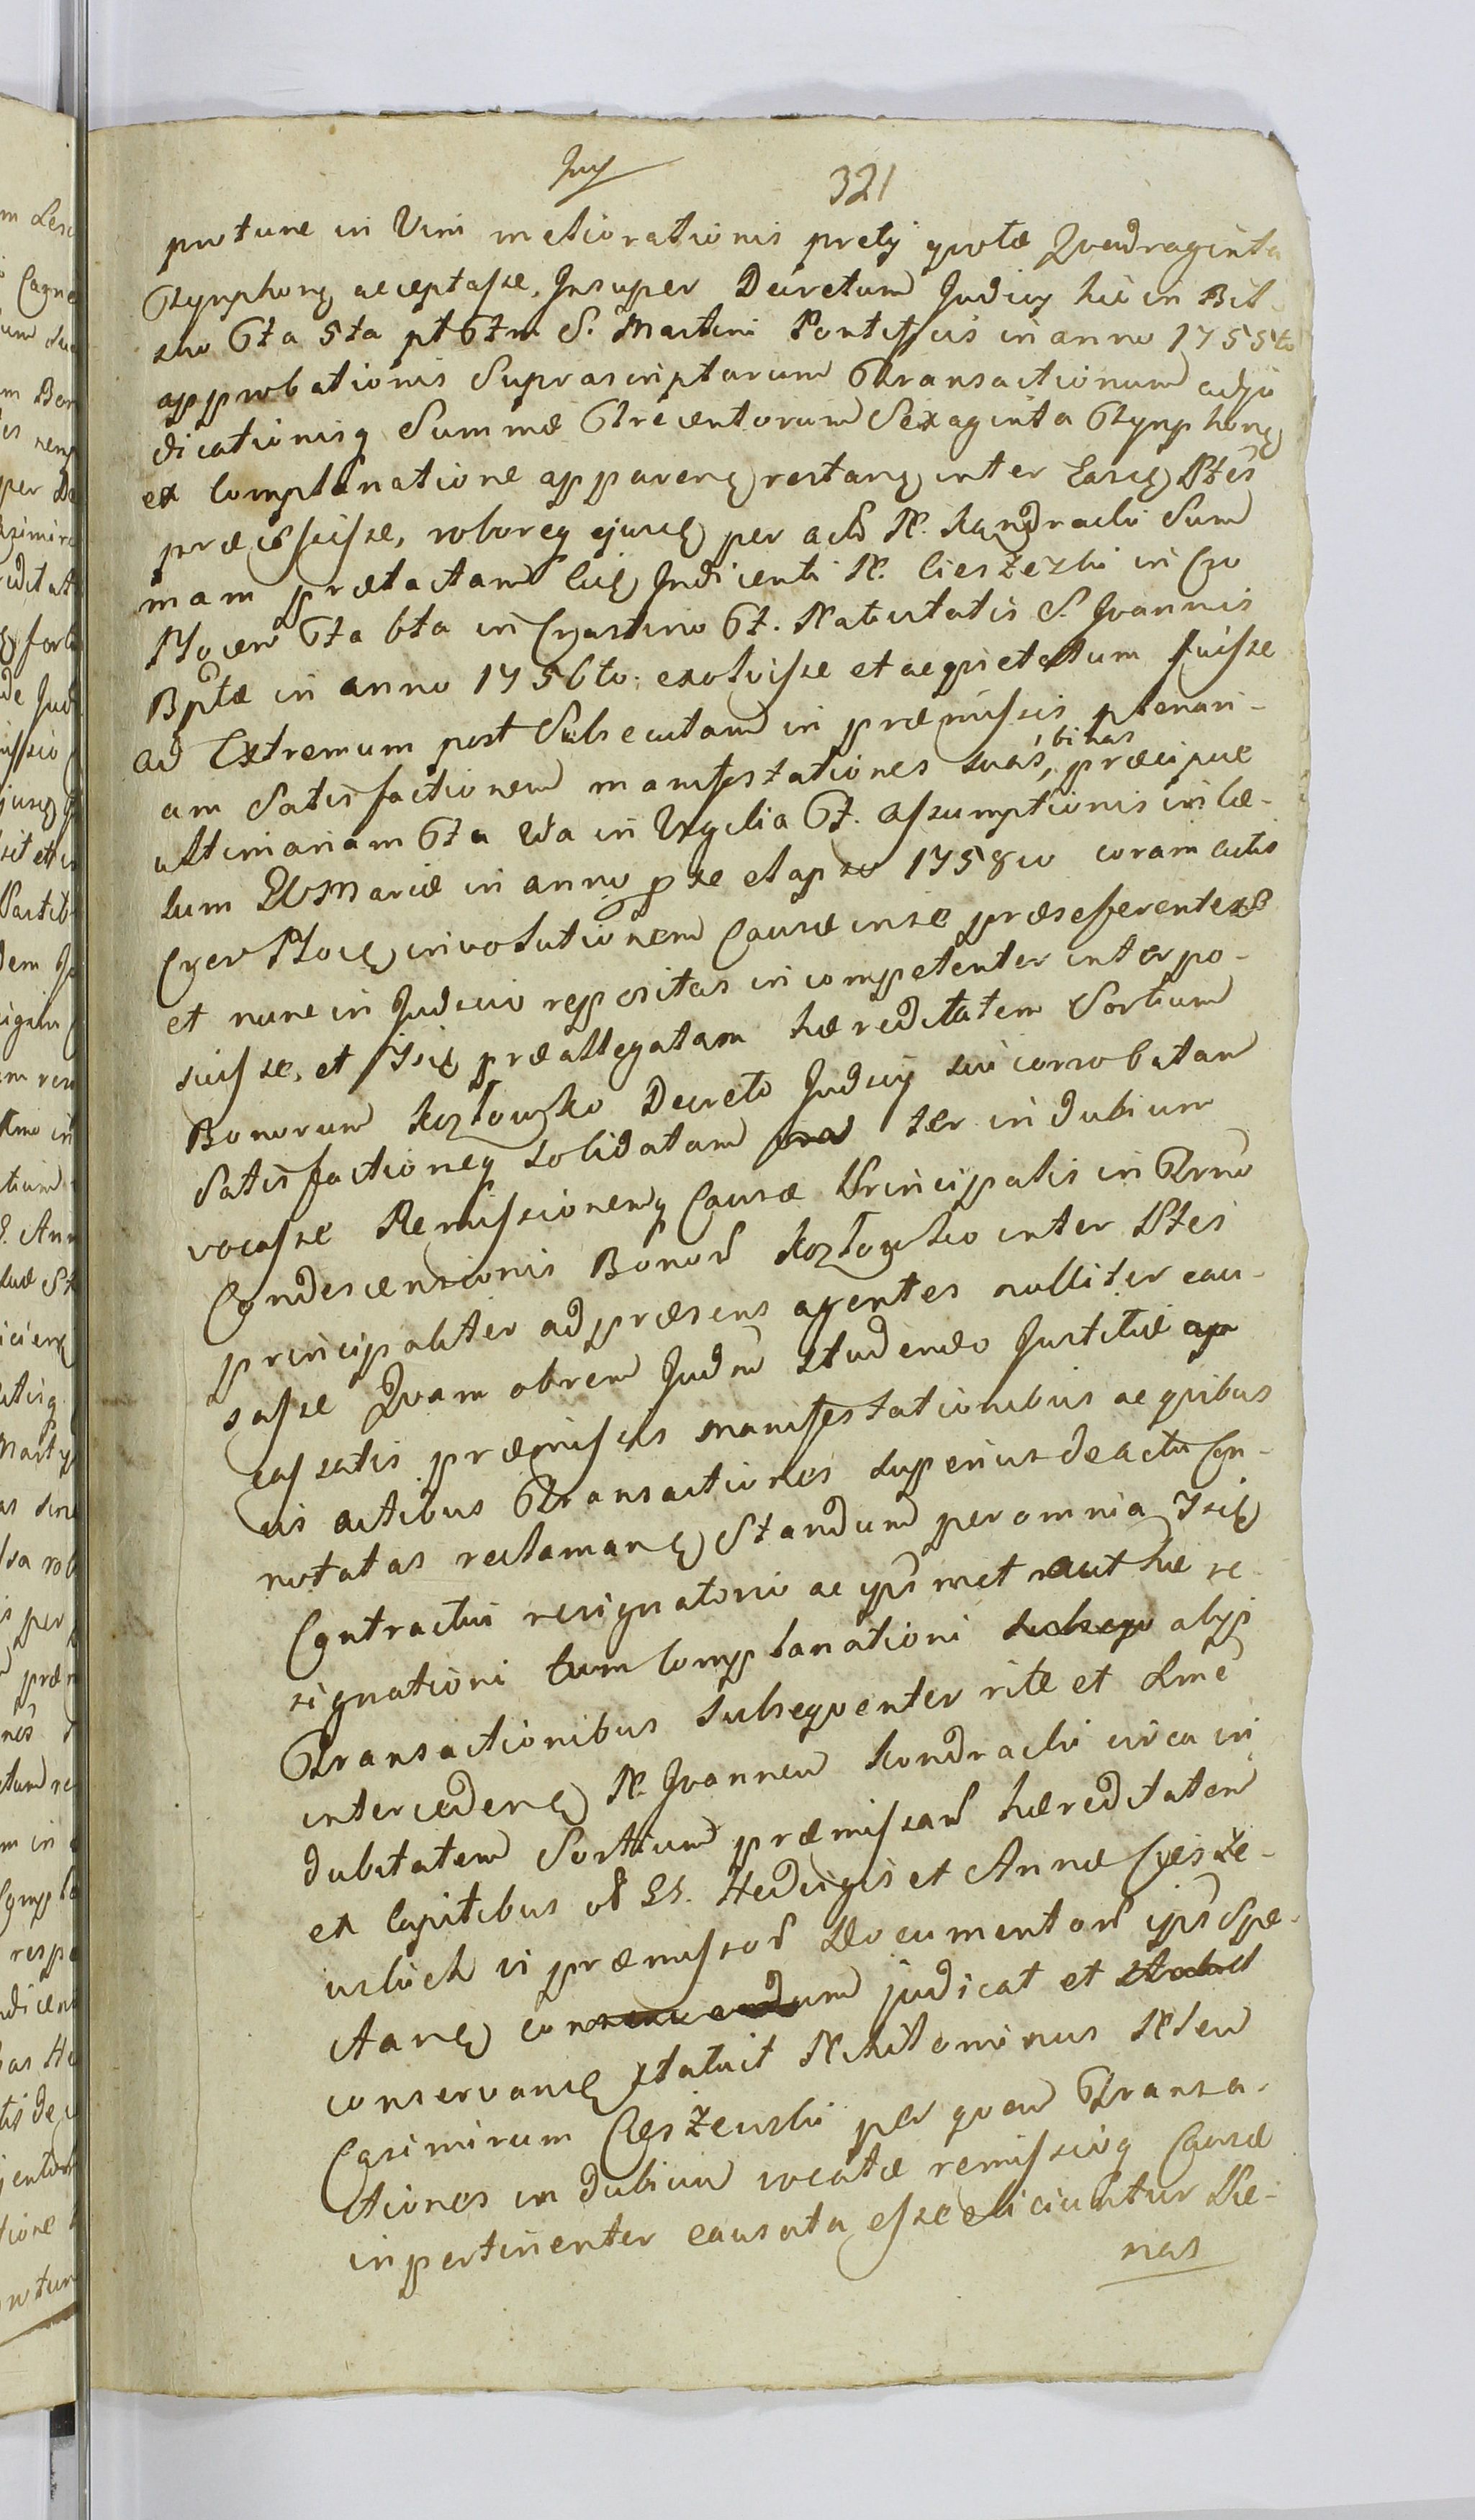 321
protunc in Vim meliorationis pretij quotæ Quadraginta
Tynphonq acceptasse, Insuper Decretum Judicij hic in Biel
sko Fa 5ta pt Ftm S. Martini Pontificis in anno 1755to
approbationis Suprascriptarum Transactionum adju
dicationisq Summæ Trecentorum Sexaginta Tynphonq
ex Complanatione apparenq restanq inter Easq Ptes
præcessisse, roboreq ejusq per actm N. Kondracki Sum
mam prætactam Eicq Indicenti N. Cieszezki in Cro
Plocen Fa 6ta in Crastino Ft. Nativitatis S. Joannis
Bptæ in anno 1756to. exolvisse et acquietatum fuisse
ad Extremum post Subsecutam in præmissis plenari-
am Satisfactionem manifestationes suas, binas præcipue
ultimariam Fa 2da in Vigilia Ft. Assumptionis in Cæ-
lum BVMariæ in anno pse elapso 1758vo coram actis
Cren Plocq involutionem Causæ in se præseferentes
et nunc in Judicio repositas incompetenter interpo-
suisse, et Isiq præallegatam hæreditatem Sortium
Bonorum Kozłowsko Decreto Judicij sui corrobatam
Satisfactioneq solidatam ser in dubium
vocasse Remissionemq Causæ Principalis in Trno
Condescensionis Bonor Kozłowsko inter Ptes
principaliter ad præsens agentes nulliter cau-
sasse Quam obrem Judm studendo Justitiæ
cassatis præmissis manifestationibus ac quibus
vis actibus Transactiones superius de actu Con-
notatas reclamanq Standum per omnia Isiq
Contractui resignatorio ac ipsmet hæ re-
signationi tum Complanationi alijs
Transactionibus subsequenter rite et Lme
intercedenq N. Joannem Kondracki circa in
dubitatem Sortium præmissar hæreditatem
ex Capitibus ol GG. Hedvigis et Annæ Ciesze-
wskich vi præmissor Documentor ips Spe-
ctanq judicat et
conservanq statuit Nihilominus Nlem
Casimirum Cieszewski per quem Transa-
ctiones in dubium vocatæ remissioq Causæ
inpertinenter causata esse eliciuntur Pæ-
nas